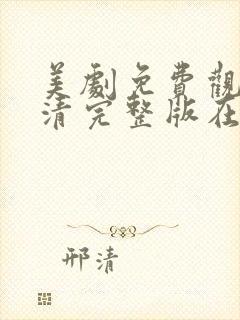 美劇免費觀
清完整版在
邢清